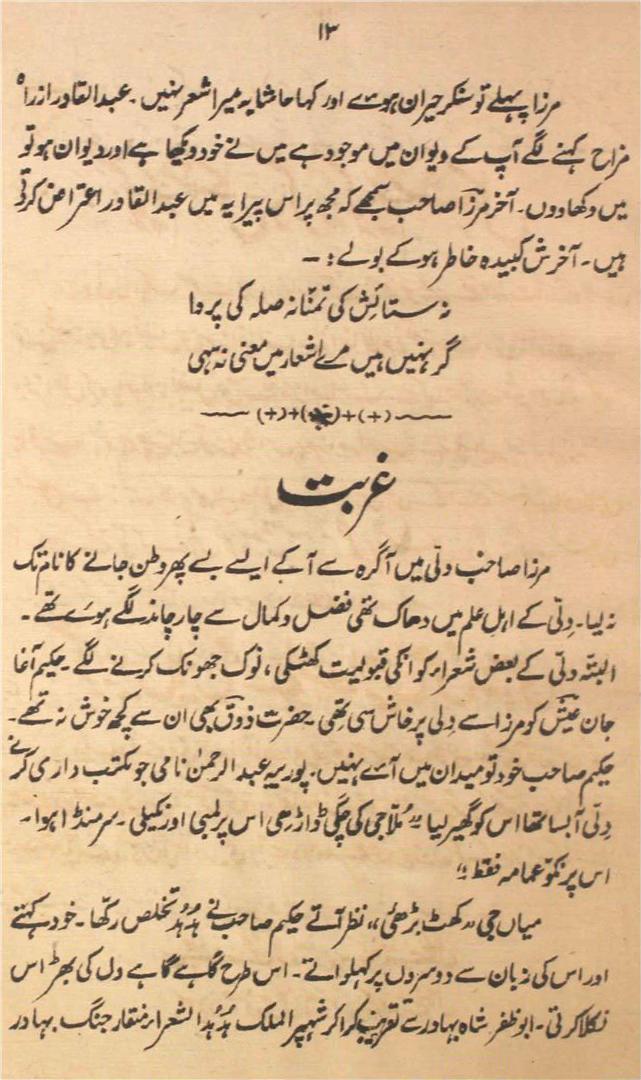 ۱۳
مرزا پہلے تو سنکر حیران ہوئے اور کہا حاشا یہ میرا شعر نہیں۔ عبدالقادر ازراہ
مزاح کہنے لگے آپ کے دیوان میں موجود ہے میں نے خود دیکھا ہے اور دیوان ہو تو
میں دکھا دوں۔ آخر مرزا صاحب سمجھے کہ مجھ پر اس پیرایہ میں عبدالقادر اعتراض کرتے
ہیں۔ آخرش کبیدہ خاطر ہو کے بولے :۔
نہ ستائش کی تمنا نہ صلہ کی پروا
گر نہیں ہیں مرے اشعار میں معنی نہ سہی
غربت
مرزا صاحب دلّی میں آگرہ سے آ کے ایسے بسے پھر وطن جانے کا نام تک
نہ لیا۔ دلّی کے اہلِ علم میں دھاک تھی فضل و کمال سے چار چاند لگے ہوئے تھے۔
البتہ دلّی کے بعض شعراء کو انکی قبولیت کھٹکی، نوک جھونک کرنے لگے۔ حکیم آغا
جان عیش کو مرزا سے دلی پرخاش سی تھی۔ حضرت ذوق بھی ان سے کچھ خوش نہ تھے۔
حکیم صاحب خود تو میدان میں آئے نہیں۔ پوربیہ عبدالرحمٰن نامی جو مکتب داری کرنے
دلّی آ بسا تھا اس کو گھیر لیا "مُلّا جی کی چگی ڈاڑھی اس پر لمبی اور نکیلی۔ سر منڈا ہوا۔
اس پر نکو عمامہ فقط"
میاں جی "کھٹ بڑھئی" نظر آتے حکیم صاحب نے ہُدہُد تخلص رکھا۔ خود کہتے
اور اس کی زبان سے دوسروں پر کہلواتے۔ اس طرح گاہے گاہے دل کی بھڑاس
نکلا کرتی۔ ابوظفر شاہ بہادر سے تقریب کرا کر شہپر الملک ہُدہُد الشعراء منقار جنگ بہادر